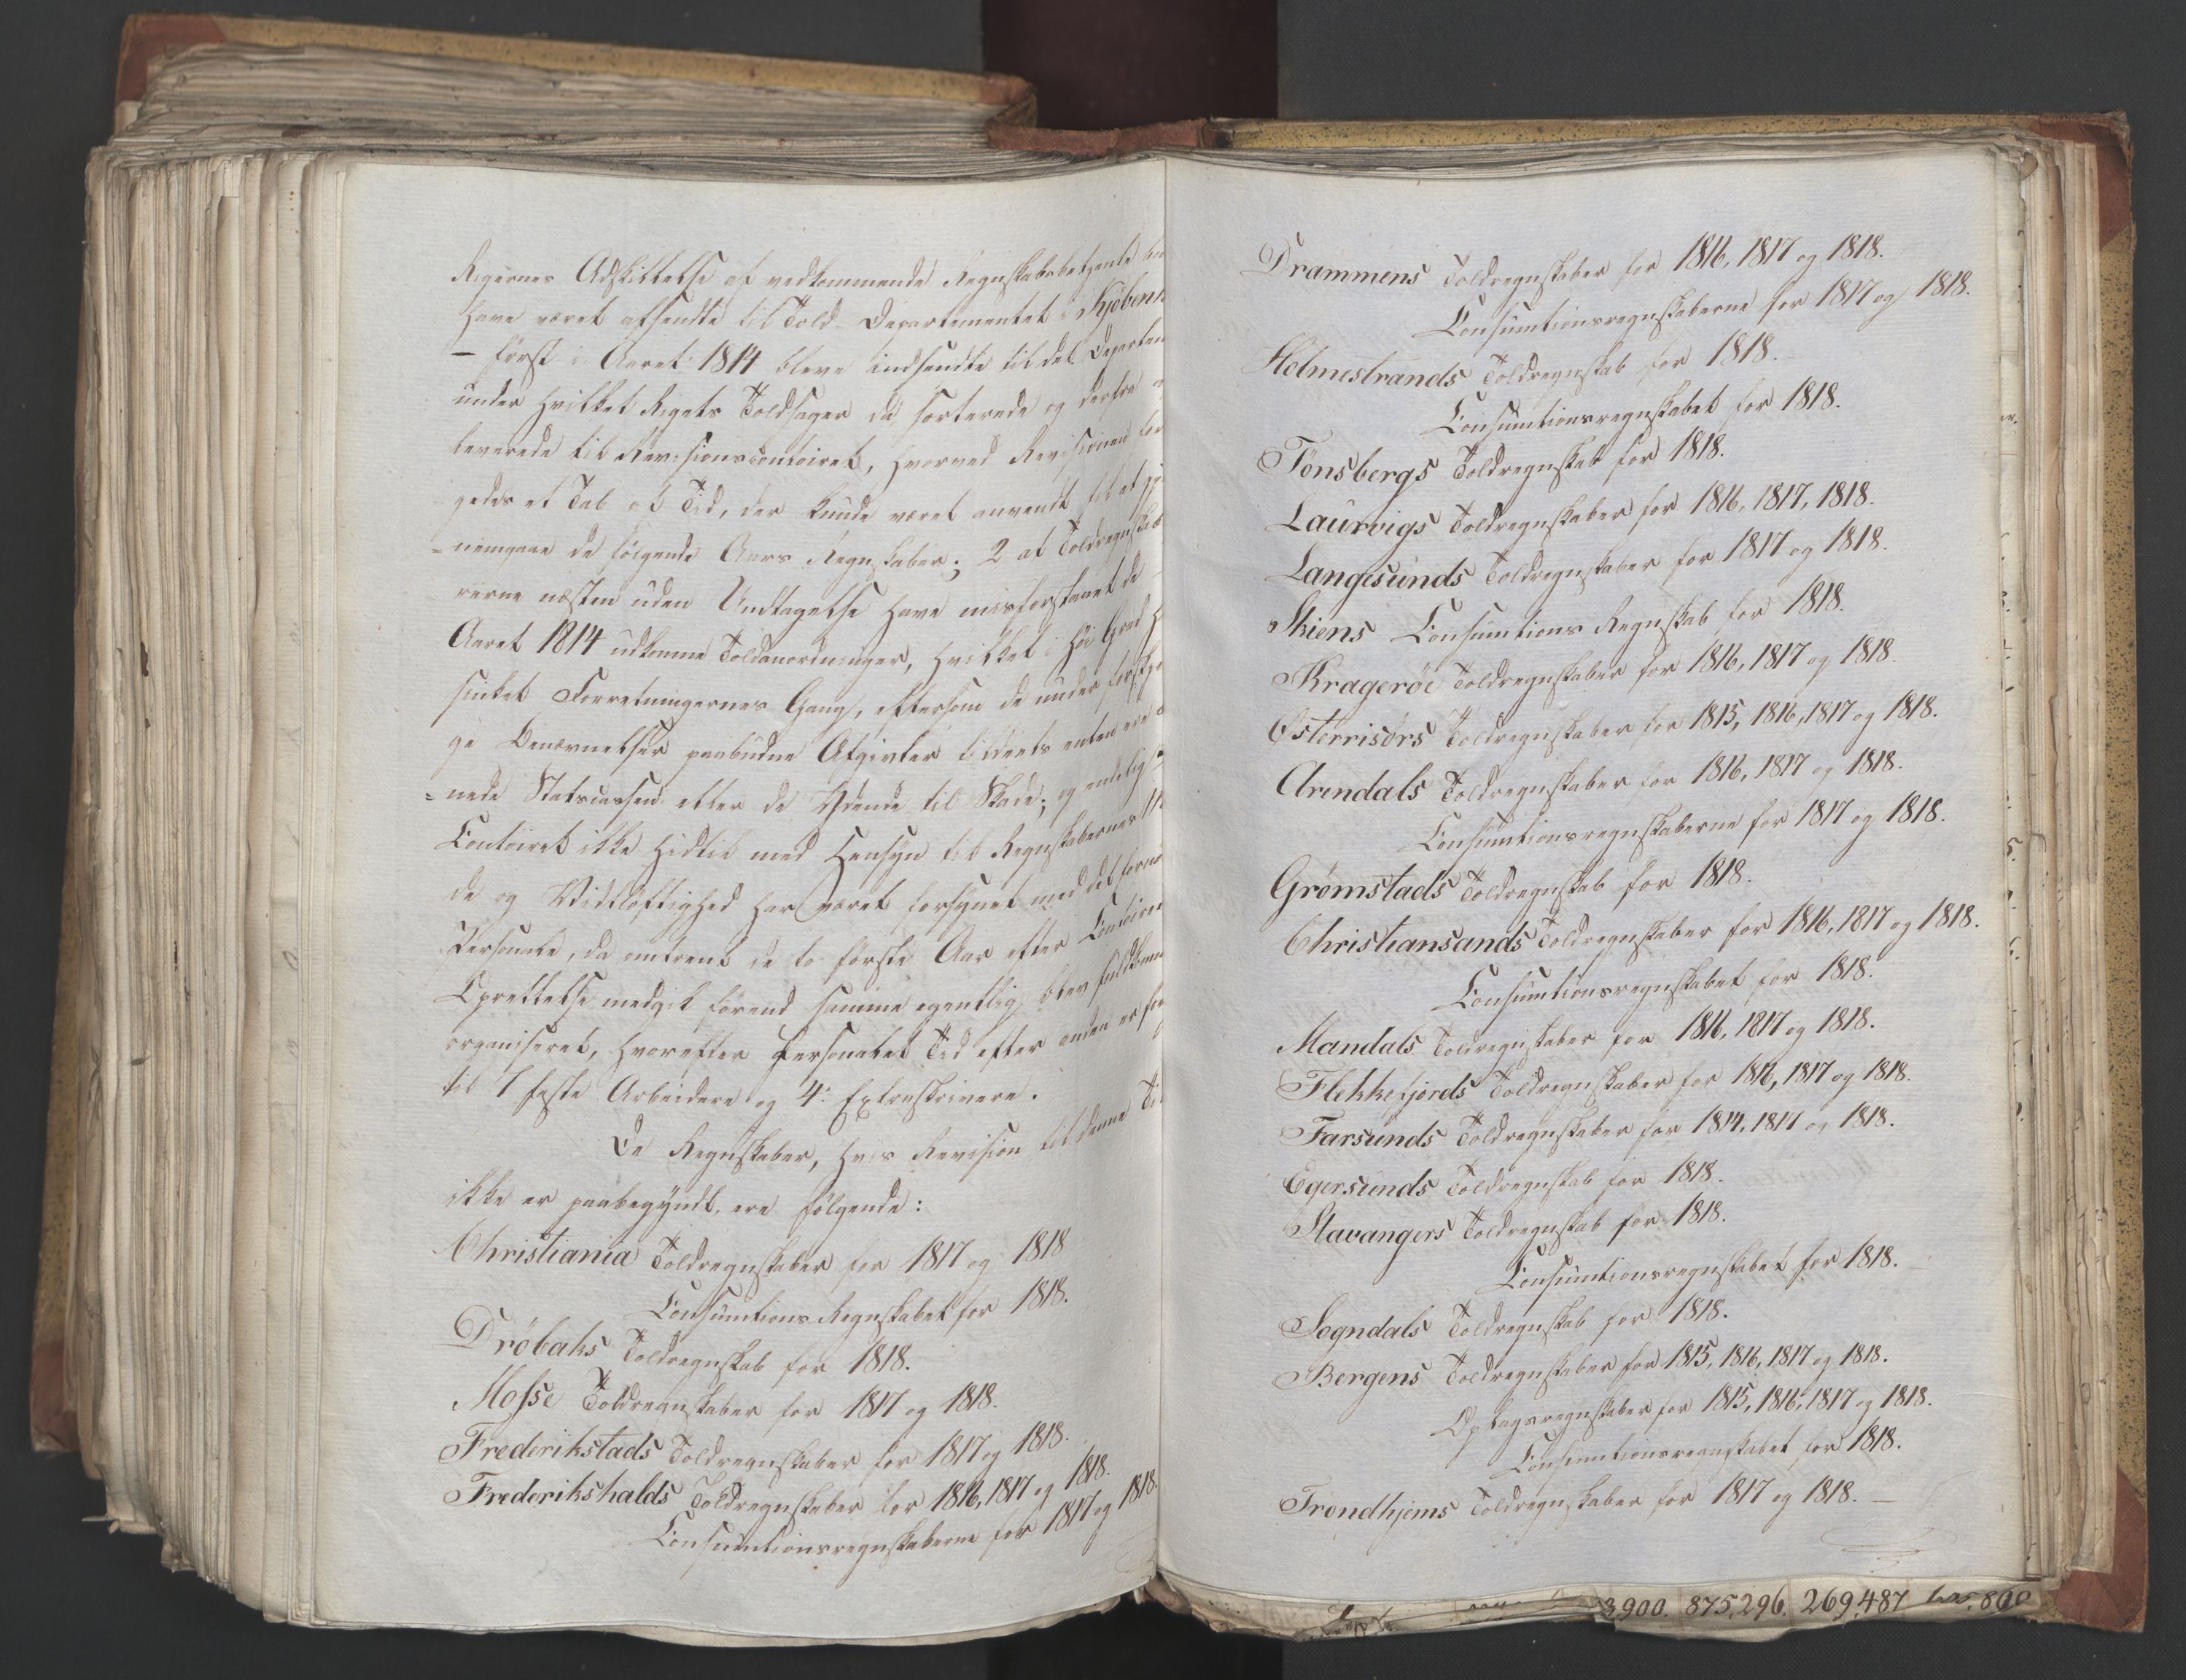 Rigernes Adskillelse af vedkommende Regnskabsbetjente
have været afsendte til Told-Departementet i Kjøbenh
– først i Aaret 1814 bleve indsendte til det Departem
under hvilket Rigets Toldsager da sorterede og derfra
leverede til Revisionscontoiret, hvorved Revisionen
gedes et Tab af Tid, der kunde været anvendt til at gj
=nemgaae de følgende Aars Regnskaber; 2 at Toldregnskab
rerne næsten uden Undtagelse have misforstaaet de
Aaret 1814 udkomne Toldanordninger, hvilket i høi Grad
sinket Forretningernes Gang, eftersom de under forskj
ge Benævnelser paabudne Afgivter tildeels enten ere
=nede Statscassen eller de Ydende til Skade; og endelig
Contoiret ikke hidtil med Hensyn til Regnskabernes
de og Vidtløftighed har været forsynet med det forn
Personale, da omtrent de to første Aar efter Contoire
Oprettelse medgik førend samme egentlig blev fuldkom
organiseret, hvorefter Personalet Tid efter anden er
til 7 faste Arbeidere og 4 Extraskrivere.
De Regnskaber, hvis Revision til denne Ti
ikke er paabegyndt, ere følgende:
Christiania Toldregnskaber for 1817 og 1818
Consumtions Regnskabet for 1818.
Drøbaks Toldregnskab for 1818.
Mosse Toldregnskaber for 1817 og 1818.
Frederikstads Toldregnskaber for 1817 og 1818.
Frederikshalds Toldregnskaber for 1816, 1817 og 1818.
Consumtionsregnskaberne for 1817 og 1818.
Drammens Toldregnskaber for 1816, 1817 og 1818.
Consumtionsregnskaberne for 1817 og 1818.
Holmestrands Toldregnskab for 1818.
Consumtionsregnskabet for 1818.
Tønsbergs Toldregnskab for 1818.
Laurvigs Toldregnskaber for 1816, 1817, 1818.
Langesunds Toldregnskaber for 1817 og 1818.
Skiens Consumtions Regnskab for 1818.
Kragerøe Toldregnskaber for 1816, 1817 og 1818.
Østerrisørs Toldregnskaber for 1815, 1816, 1817 og 1818.
Arendals Toldregnskaber for 1816, 1817 og 1818.
Consumtionsregnskaberne for 1817 og 1818.
Grømstads Toldregnskab for 1818.
Christiansands Toldregnskaber for 1816, 1817 og 1818.
Consumtionsregnskabet for 1818.
Mandals Toldregnskaber for 1816, 1817 og 1818.
Flekkefjords Toldregnskaber for 1816, 1817 og 1818.
Farsunds Toldregnskaber for 1814, 1817 og 1818.
Egersunds Toldregnskab for 1818.
Stavangers Toldregnskab for 1818.
Consumtionsregnskabet for 1818.
Sogndals Toldregnskab for 1818.
Bergens Toldregnskaber for 1815, 1816, 1817 og 1818.
Oplagsregnskaber for 1815, 1816, 1817 og 1818.
Consumtionsregnskabet for 1818.
Trondhjems Toldregnskaber for 1817 og 1818. –
3,900. 875,296. 269,487